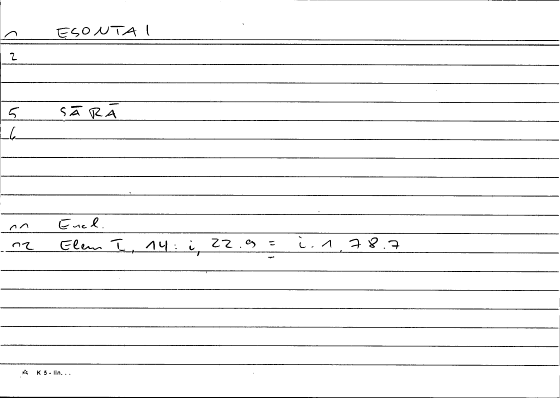 1 ESONTAI
2
5 SĀRĀ
6
11 Eucl.
12 Elem I, 14: i, 22.9 = i.1.78.7
K 5 - lin...